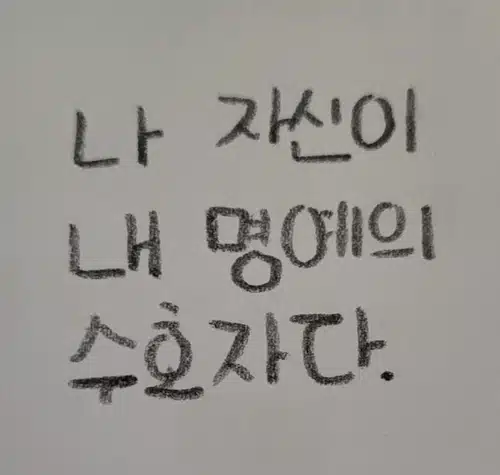 나 자신이
내 명예의
수호자다.